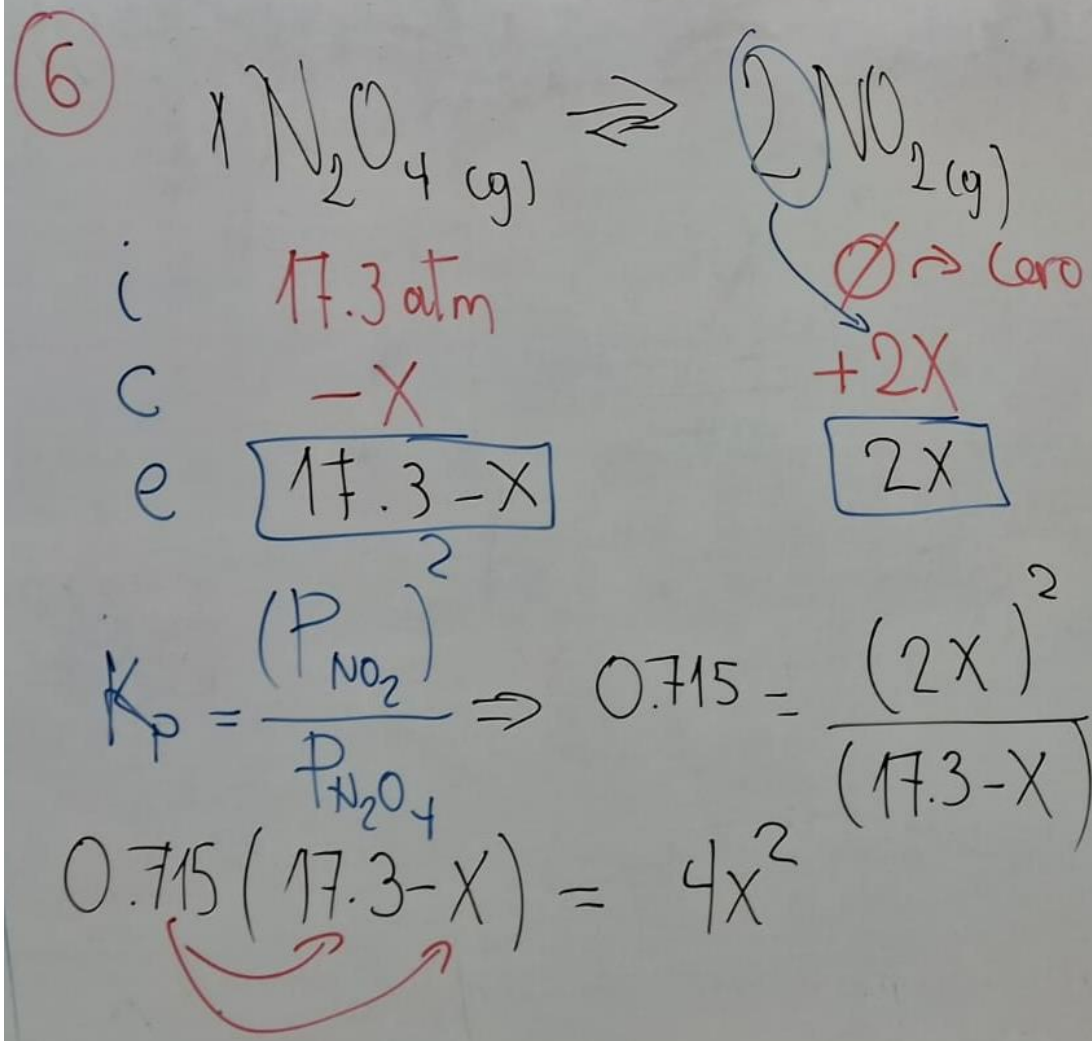 6
x N₂O₄ (g) ⇌ 2 NO₂ (g)
i 17.3 atm Ø → Cero
c - X + 2X
e 17.3 - X 2X
Kp = (P NO₂)² / P N₂O₄ ⇒ 0.715 = (2X)² / (17.3 - X)
0.715 (17.3 - X) = 4x²